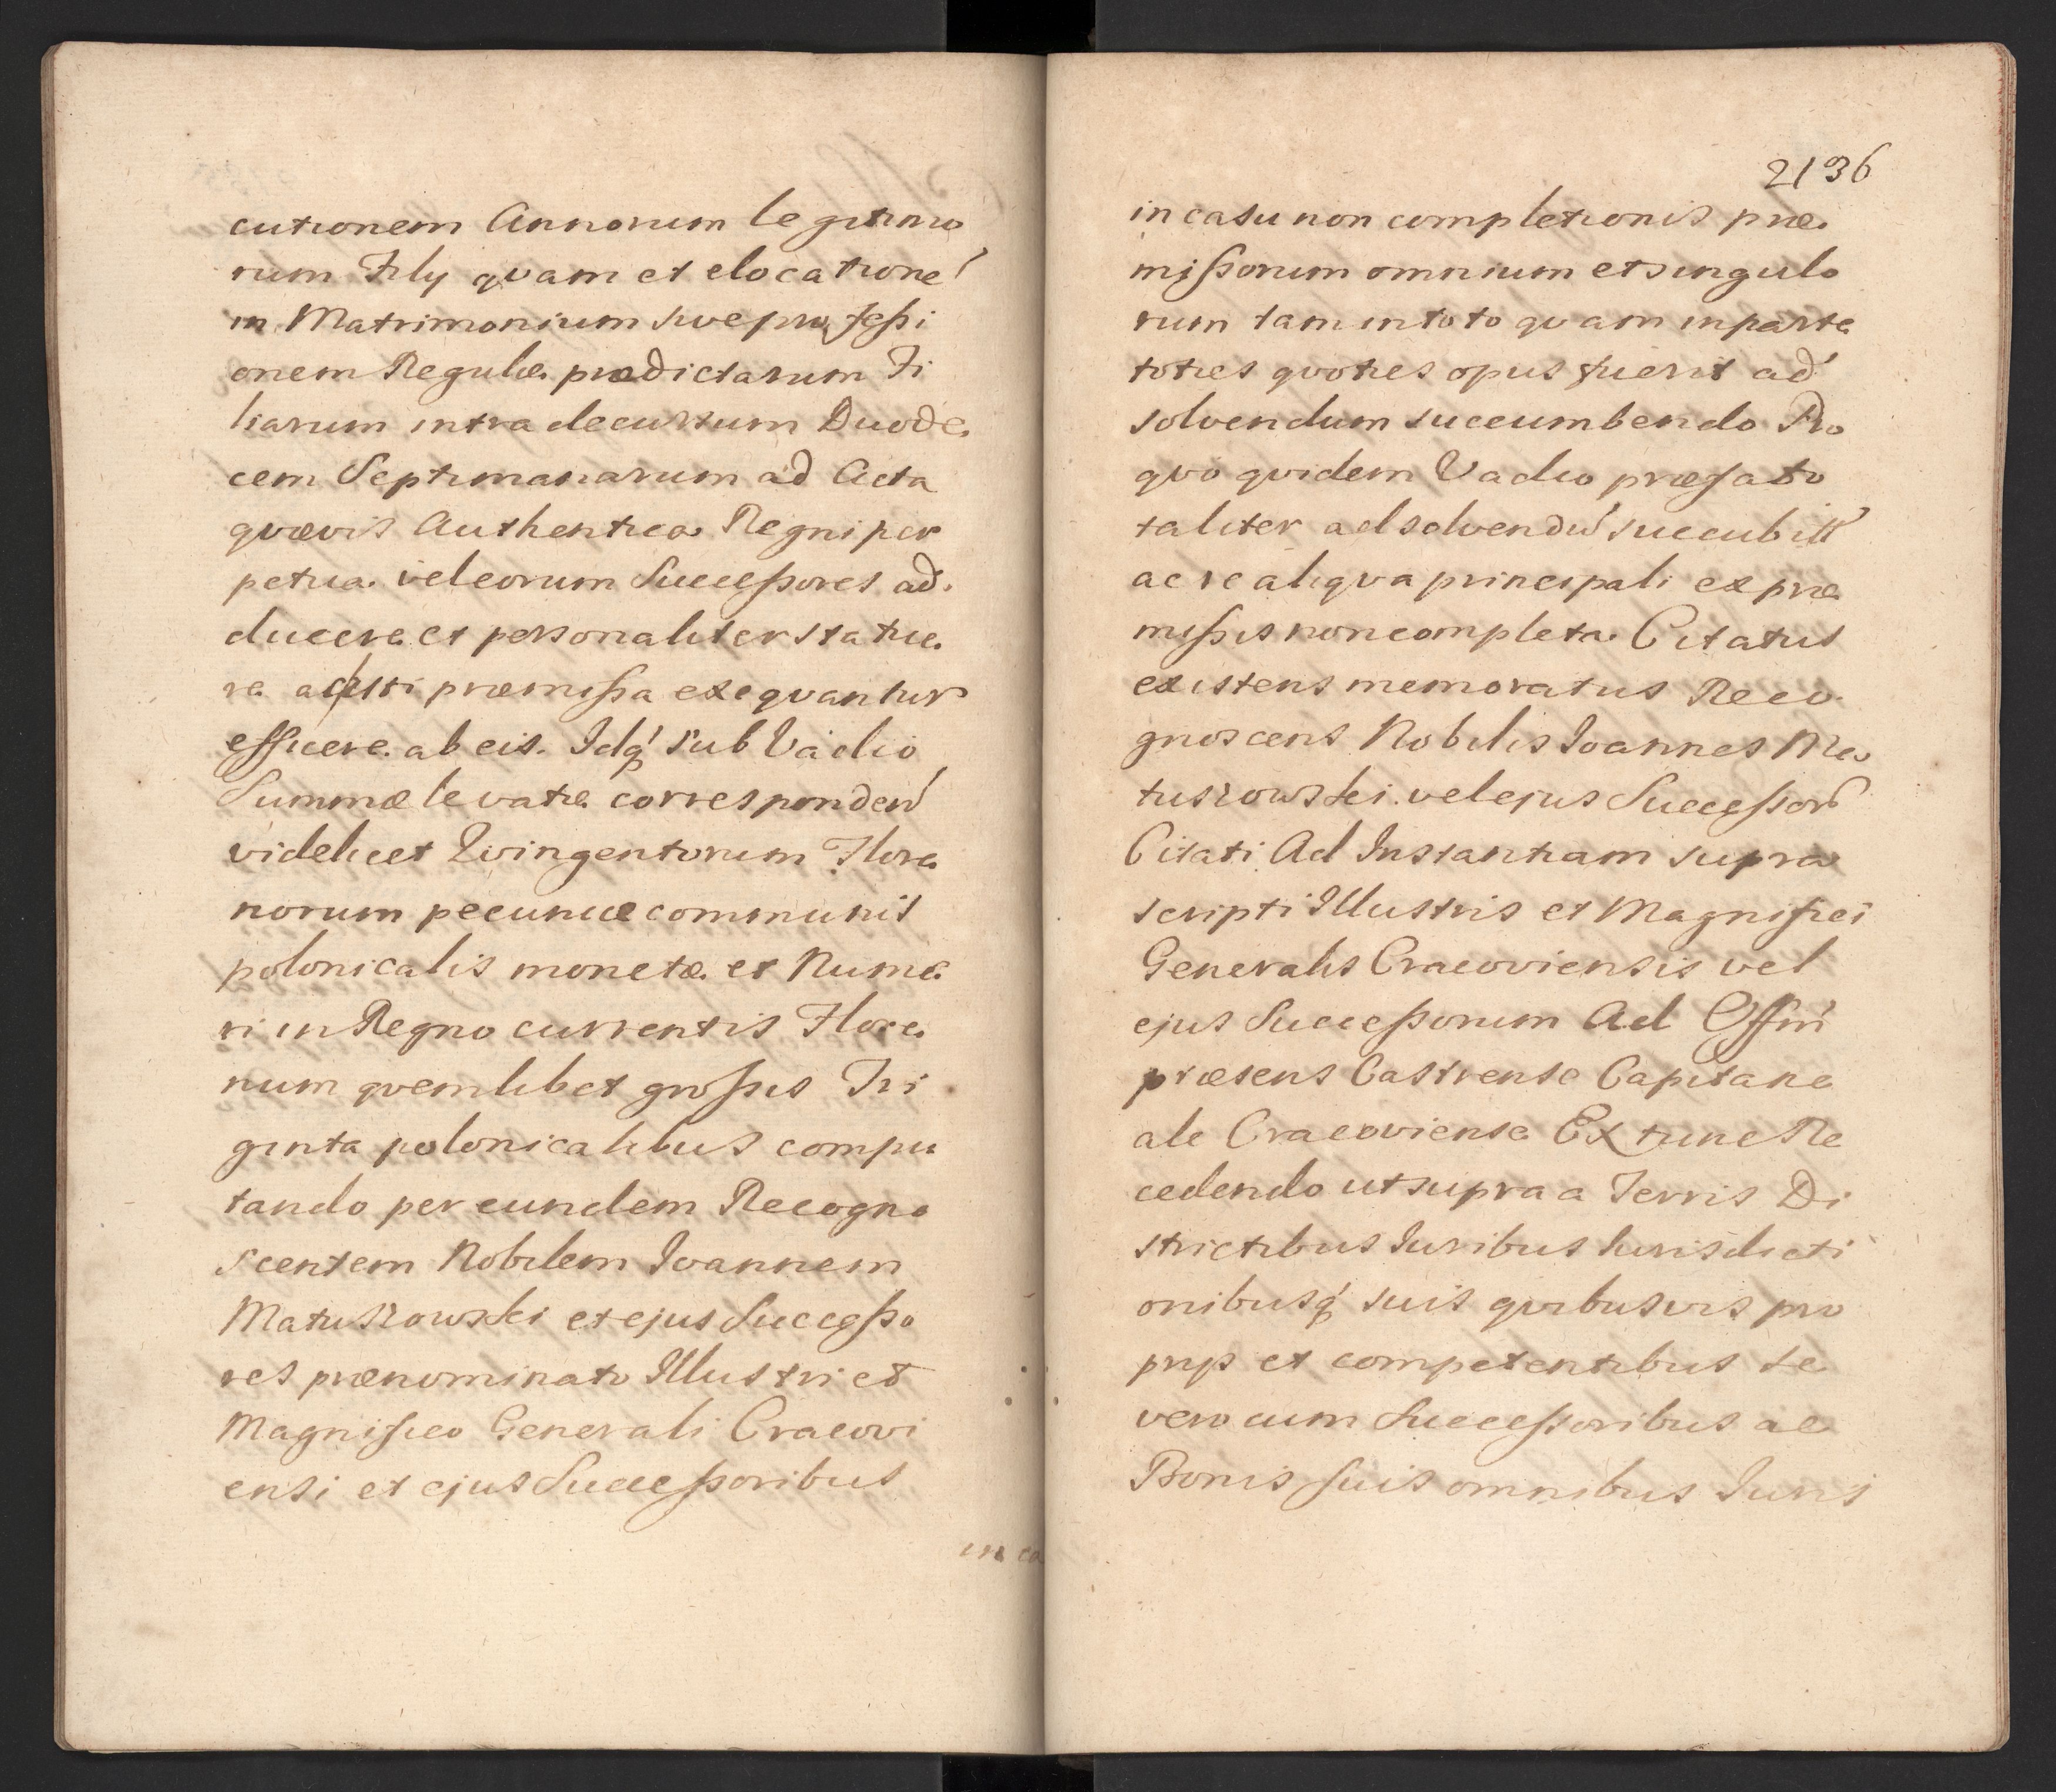 cutionem Annorum legitimo
rum Filij qvam et elocatione
in Matrimonium sive professi
onem Regulæ prædictarum Fi
liarum intra decursum Duode
cem Septimanarum ad Acta
qvævis Authentica Regni per
petua vel eorum Successores ad
ducere et personaliter statue
re præmissa exeqvantur
efficere ab eis. Idq́ sub Vadio
Summæ levatæ corresponden
videlicet Qvingentorum Flore
norum pecuniæ communis
polonicalis monetæ et Nume
ri in Regno currentis Flore
num qvemlibet grossis Tri
ginta polonicalibus compu
tando per eundem Recogno
scentem Nobilem Joannem
Matuszowski et ejus Successo
res prænominato Illustri et
Magnifico Generali Cracovi
ensi et ejus Successoribus
in ca
2136
in casu non completionis præ
missorum omnium et singulo
rum tam in toto qvam in parte
toties qvoties opus fuerit ad
solvendum succumbendo Pro
qvo qvidem Vadio præfato
taliter ad solvendu succubitt
ac re aliqva principali ex præ
missis non completa Citatus
existens memoratus Reco
gnoscens Nobilis Joannes Ma
tuszowski vel ejus Successor
Citati Ad Instantiam supra
scripti Illustris et Magnifici
Generalis Cracoviensis vel
ejus Successorum Ad Offim
præsens Castrense Capitane
ale Cracoviense Ex tunc Re
cedendo ut supra a Terris Di
strictibus Iuribus Iurisdicti
onibusq́ suis qvibusvis pro
prijs et competentibus se
vero cum Successoribus ac
Bonis suis omnibus Juris